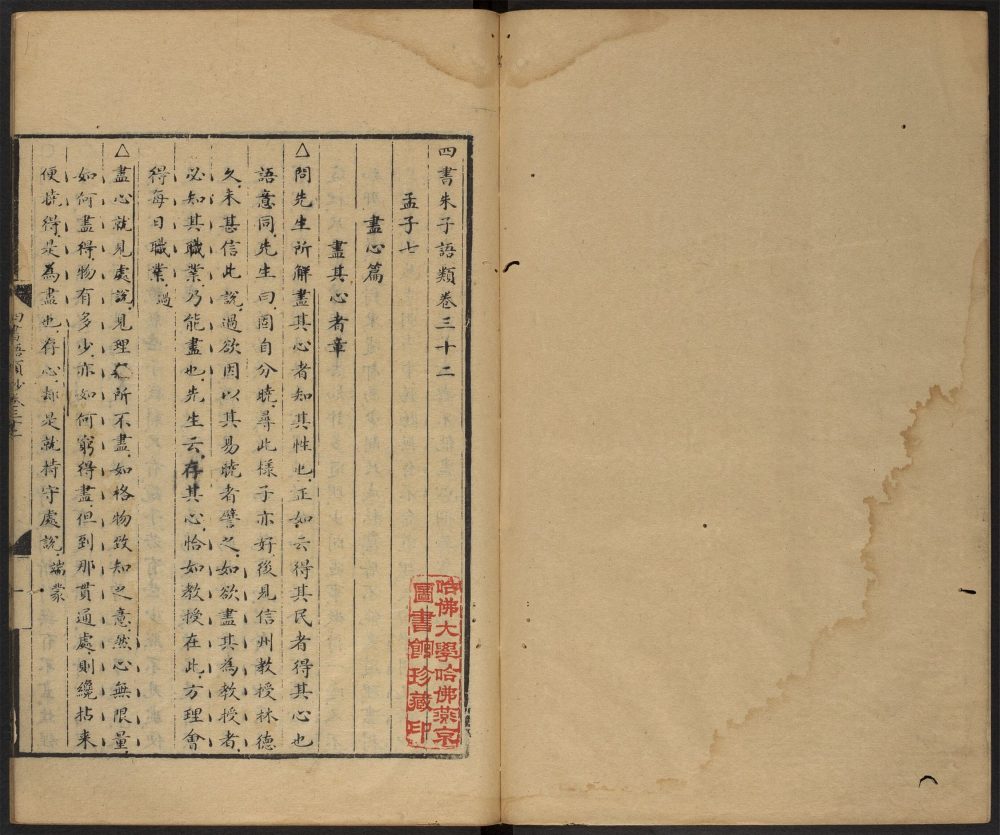 四書朱子語類卷三十二
孟子七
盡心篇
盡其心者章
△問先生所解盡其心者知其性也正如云得其民者得其心也
語意同先生曰固自分曉尋此樣子亦好後見信州教授林德
久未甚信此說過欲因以其易曉者譬之如欲盡其為教授者
必知其職業乃能盡也先生云存其心恰如教授在此方理會
得每日職業過
△盡心就見處說見理無所不盡如格物致知之意然心無限量
如何盡得物有多少亦如何窮得盡但到那貫通處則纔拈來
便曉得是為盡也存心却是就持守處說端蒙
四書語類鈔卷三十二
一
哈佛大學哈佛燕京
圖書館珍藏印